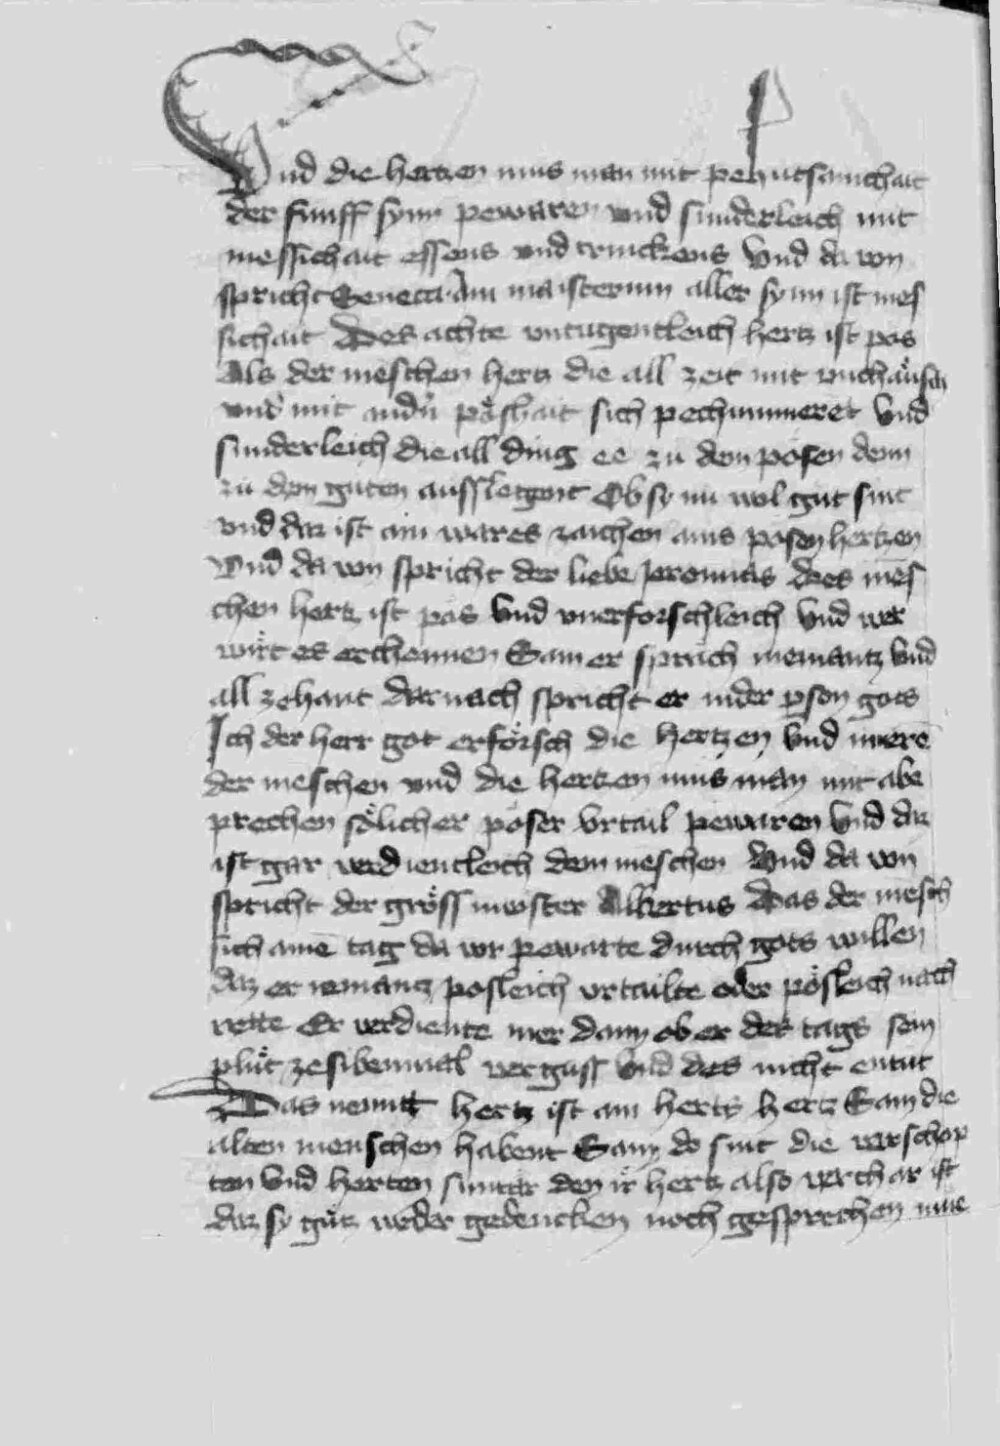 Vnd die hertzen mus man mit pehutsamchait
der funff synn pewaren vnd sunderleich mit
messichait essens vnd trinckens Vnd da von
spricht Seneca Ain maisterinn aller synn ist mes
sichait Das achte vntugentleich hertz ist pos
Als der meschen hertz die all zeit mit vnchaüsch
vnd mit andern poshait sich pechummeret Vnd
sunderleich die all ding ee zu dem posen denn
zu dem guten ausslegent Ob sy nu wol gut sint
vnd daz ist ain wares zaichen ains posen hertzen
Vnd da von spricht der liebe Jeremias Des mes
chen hertz ist pos Vnd vnerforschleich Vnd wer
wirt es erchennen Sam er sprach niemantz Vnd
all zehant darnach spricht er in der pson gots
Ich der herr got erforsch die hertzen Vnd inere
der meschen vnd die hertzen mus man mit abe
prechen sölicher poser vrtail pewaren Vnd daz
ist gar verdientleich dem meschen Vnd da von
spricht der gröss meister Albertus Das der mesch
sich aine tag da vor pewarte durch gots willen
daz er niemantz posleich vrtailte oder pösleich nach
rette Er verdiente mer dann ob er des tags sein
plut ze sibenmal vergass Vnd des nicht entut
Das neunt hertz ist ain herts hertz Sam die
alten menschen habent Sam do sint die verschop
ten Vnd herten sunter den ir hertz also verchart ist
daz sy gutz weder gedencken noch gesprechen mue